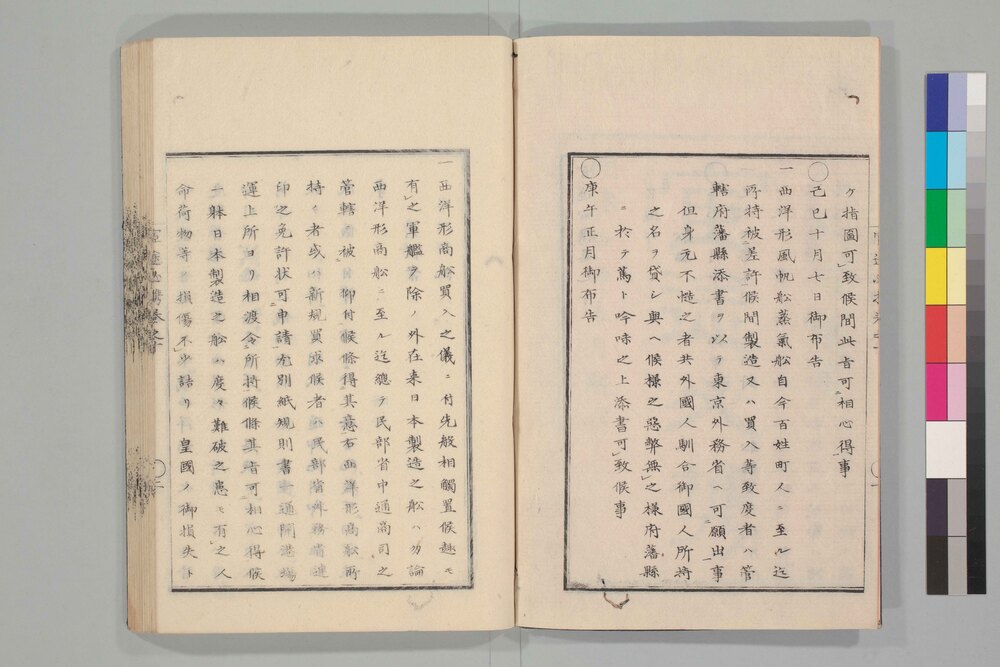 ケ指圖可致候間此旨可相心得事
〇己巳十月七日御布告
一西洋形風帆舩蒸氣舩自今百姓町人ニ至ル迄
所持被差許候間製造又ハ買入等致度者ハ管
轄府藩縣添書ヲ以テ東京外務省ヘ可願出事
但身元不慥之者共外國人馴合御國人所持
之名ヲ貸シ與ヘ候様之惡弊無之様府藩縣
ニ於テ篤ト吟味之上添書可致候事
〇庚午正月御布告
一西洋形商舩買入之儀ニ付先般相觸置候趣モ
有之軍艦ヲ除ノ外在来日本製造之舩ハ勿論
西洋形商舩ニ至ル迄總テ民部省中通商司之
管轄被仰付候條得其意右西洋形商舩所
持之者或ハ新規買求候者ハ民部省外務省連
印之免許状可申請尤別紙規則書開港場
運上所ヨリ相渡令所持候條其旨可相心得候
一躰日本製造之舩ハ度々難破之患モ有之人
命荷物等損傷不少詰リ皇國ノ御損失